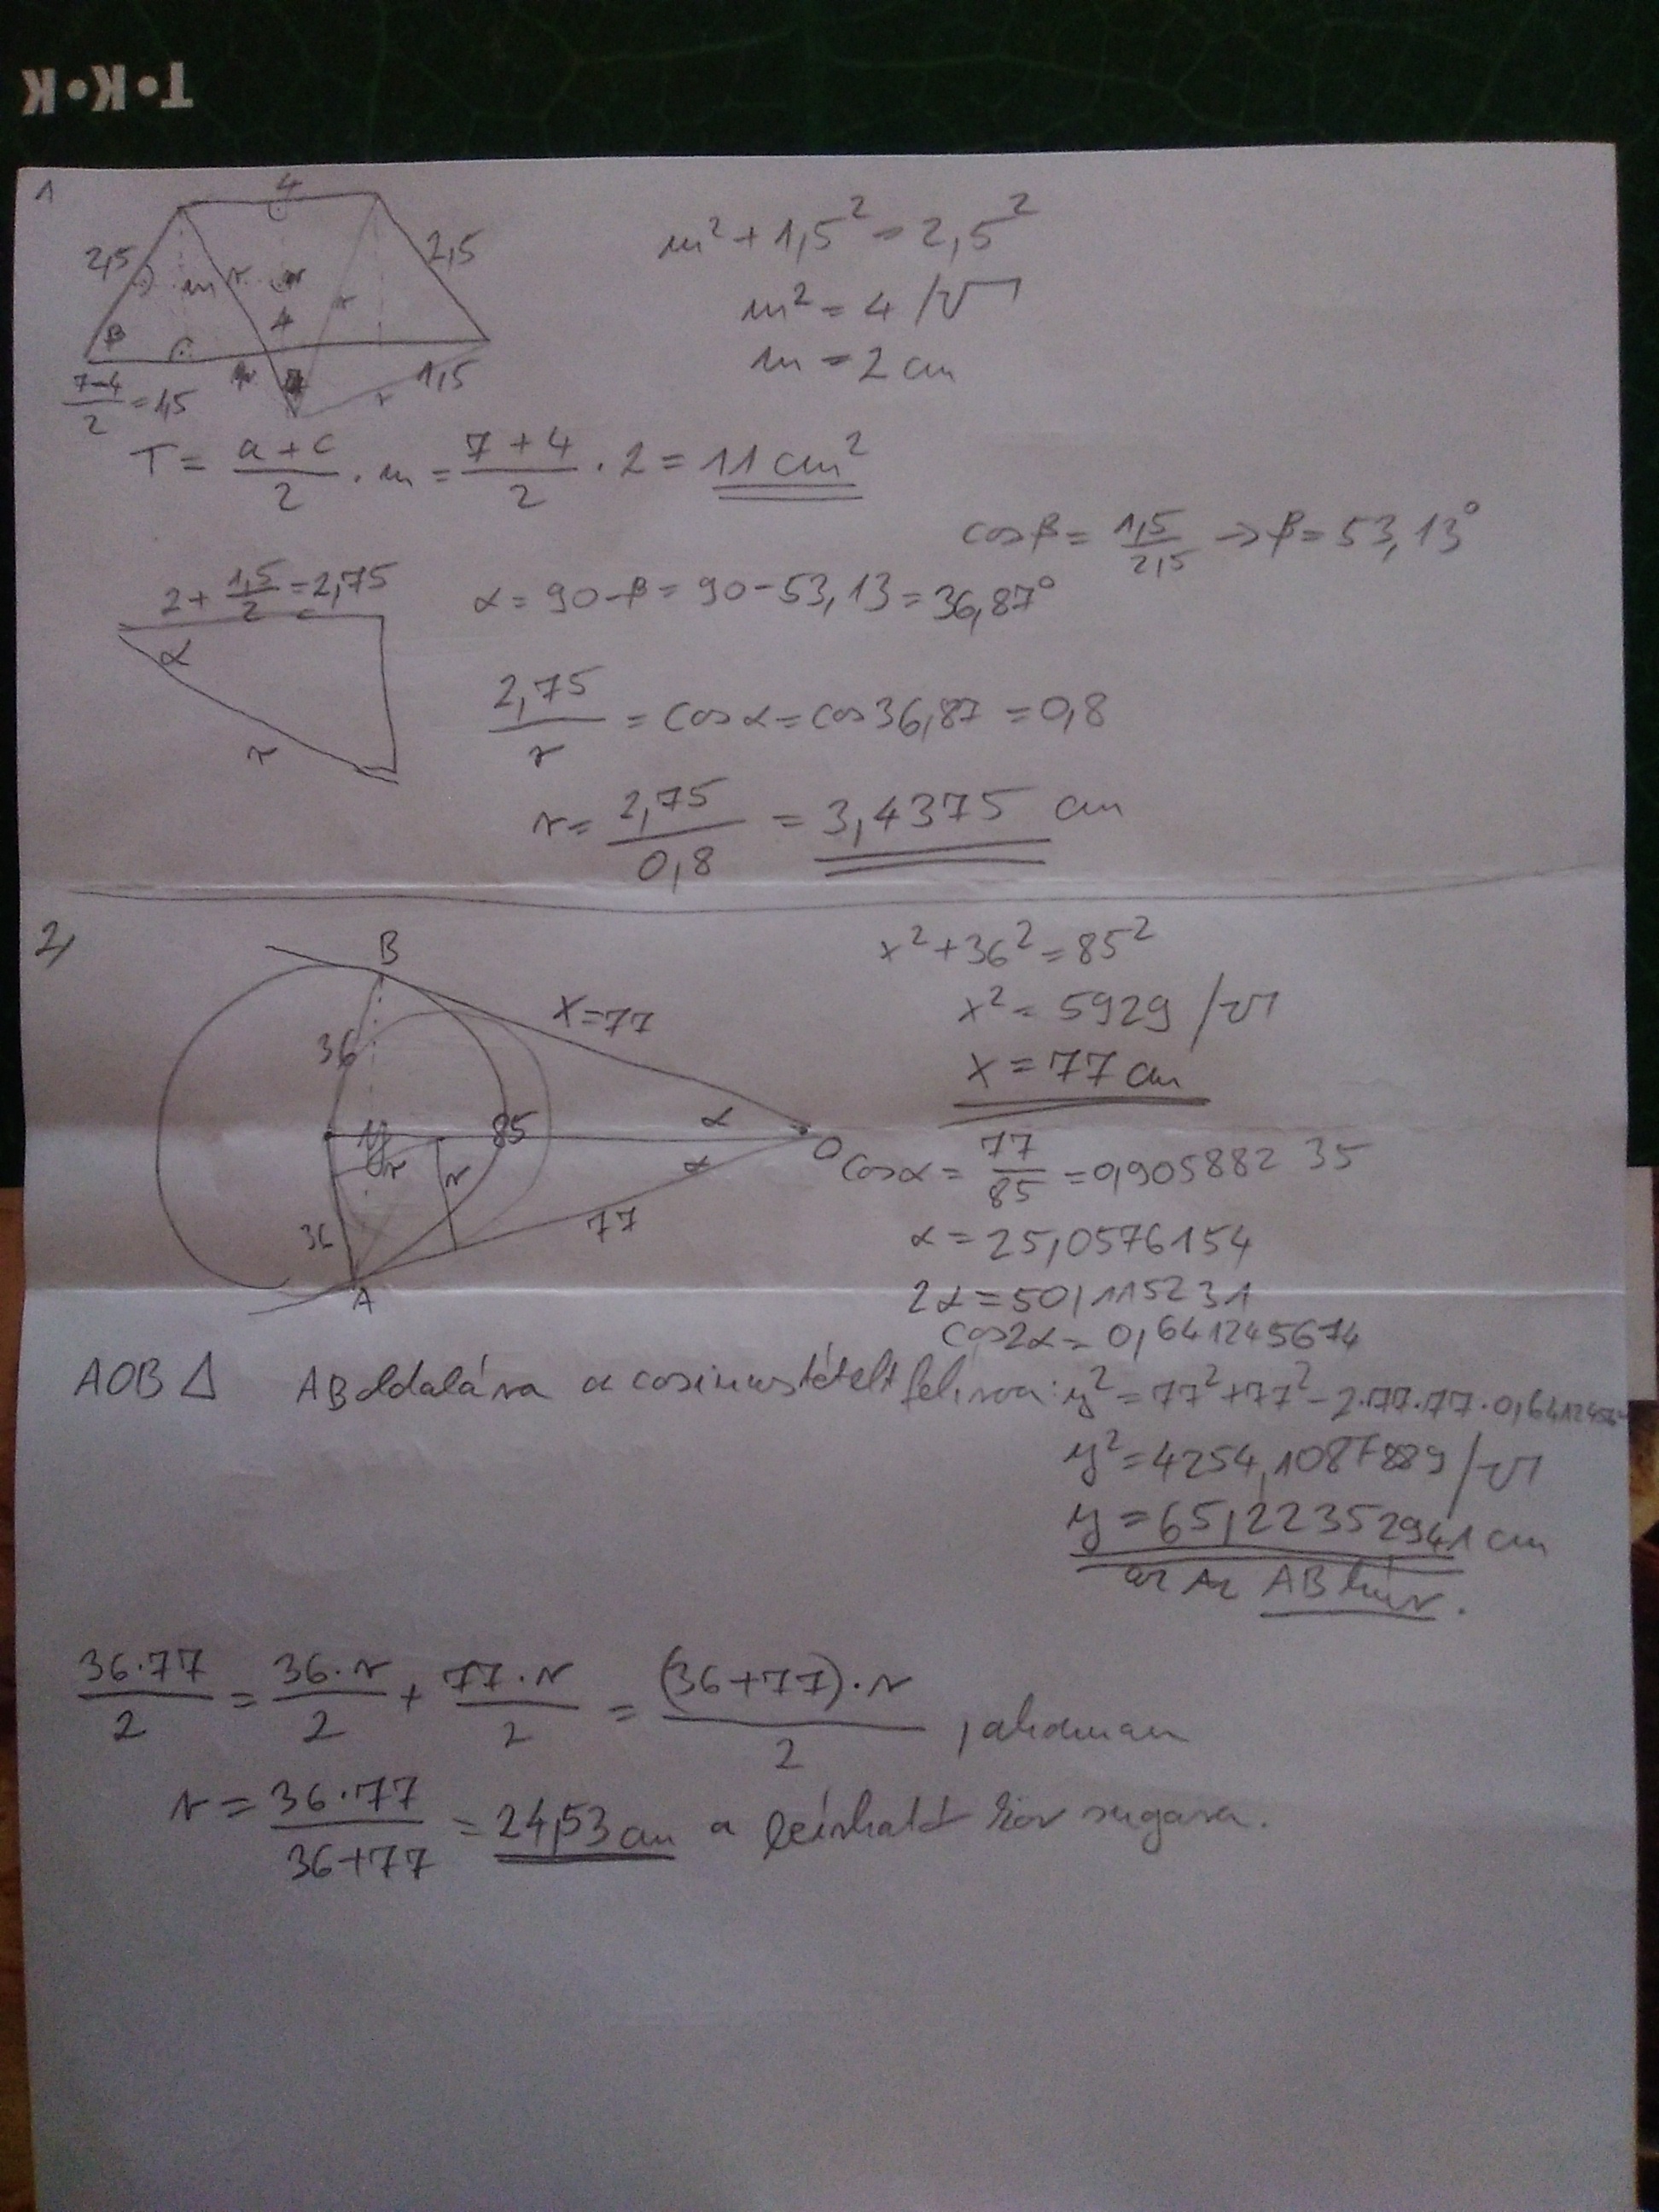 T•K•K
1
4
2,5
m
r
r
2,5
β
(7-4)/2 = 1,5
1,5
r
m² + 1,5² = 2,5²
m² = 4 /√
m = 2 cm
T = (a+c)/2 · m = (7+4)/2 · 2 = 11 cm²
cosβ = 1,5/2,5 → β = 53,13°
2 + 1,5/2 = 2,75
α = 90-β = 90-53,13 = 36,87°
α
r
2,75/r = cosα = cos36,87 = 0,8
r = 2,75/0,8 = 3,4375 cm
2,
B
x=77
36
y
85
α
α
O
r
r
36
77
A
x² + 36² = 85²
x² = 5929 /√
x = 77 cm
cosα = 77/85 = 0,905882 35
α = 25,0576154
2α = 50,115231
cos2α = 0,641245674
AOB △ AB oldalára a cosinustételt felírva: y² = 77² + 77² - 2·77·77·0,6412456
y² = 4254,1087889 /√
y = 65,2235294 1 cm
az AB húr.
36·77/2 = 36·r/2 + 77·r/2 = (36+77)·r/2 , ahonnan
r = 36·77/(36+77) = 24,53 cm a beírható kör sugara.